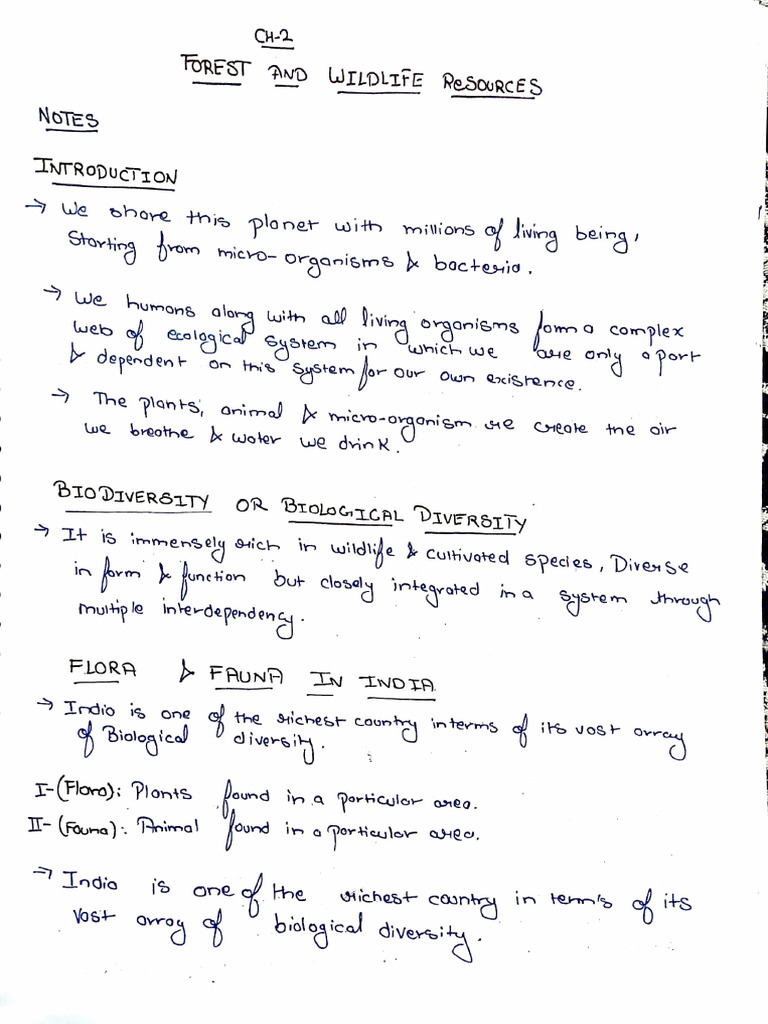 CH-2
FOREST AND WILDLIFE RESOURCES
NOTES
INTRODUCTION
→ We share this planet with millions of living being,
Starting from micro-organisms & bacteria.
→ We humans along with all living organisms form a complex
web of ecological system in which we are only a part
& dependent on this system for our own existence.
→ The plants, animal & micro-organism re create the air
we breathe & water we drink.
BIODIVERSITY OR BIOLOGICAL DIVERSITY
→ It is immensely rich in wildlife & cultivated species, Diverse
in form & function but closely integrated in a system through
multiple interdependency.
FLORA & FAUNA IN INDIA
→ India is one of the richest country interms of its vast array
of Biological diversity.
I-(Flora): Plants found in a particular area.
II-(Fauna): Animal found in a particular area.
→ India is one of the richest country in term's of its
vast array of biological diversity.